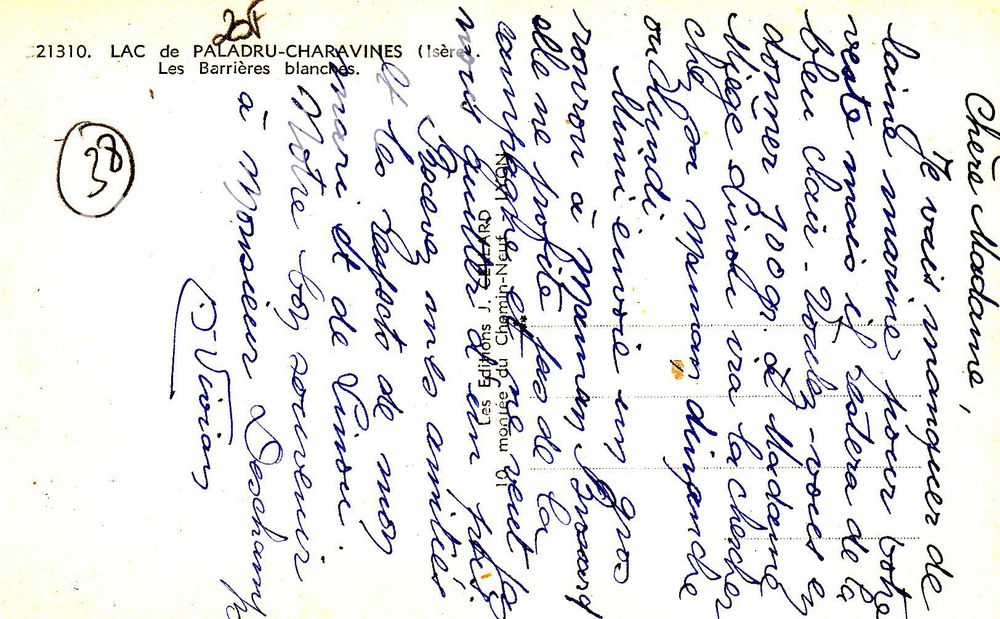 21310. LAC de PALADRU-CHARAVINES (Isère).
Les Barrières blanches.
38
Les Editions J. CELLARD
10 montée du Chemin-Neuf LYON
Chère Madame,
Je vais manquer de
laine marine pour votre
veste mais il restera de la
bleu clair. Voulez-vous en
donner 100 gr. à Madame
Miège Simon ira la chercher
chez sa Maman dimanche
ou lundi.
Mimi envoie un gros
ronron à Maman Brossard
elle ne profite pas de la
campagne et ne veut pas
nous quitter d'un pas.
Recevez mes amitiés
et les respects de mon
mari et de Simon.
Notre bon souvenir
à Monsieur Deschamps